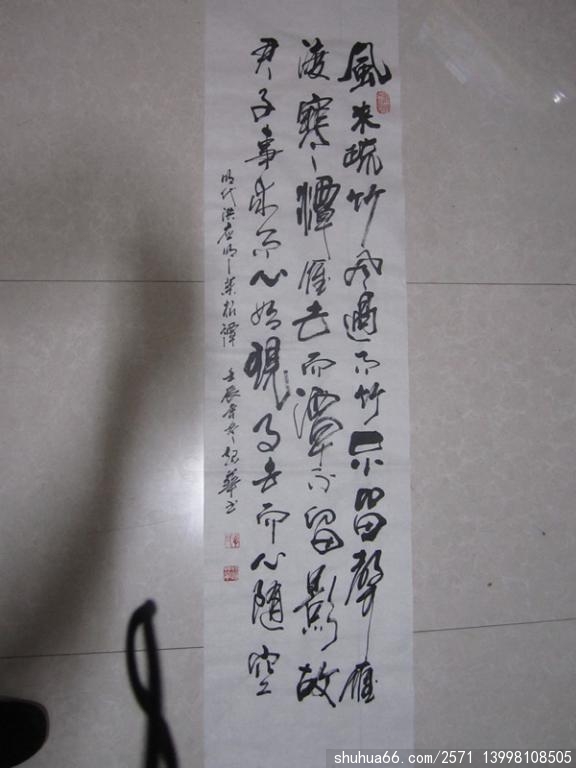 風来疏竹風過而竹不留聲雁
渡寒潭雁去而潭不留影故
君子事来而心始現事去而心隨空
明代洪应明菜根譚 壬辰年冬 華书
shuhua66.com/2571 13998108505